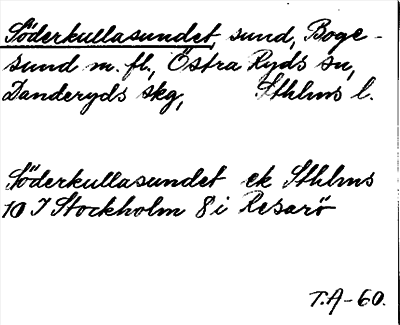 Söderkullasundet, sund, Boge-
sund m. fl., Östra Ryds sn,
Danderyds skg, Sthlms l.
Söderkullasundet ek Sthlms
10 I Stockholm 8 i Resarö
T.A-60.